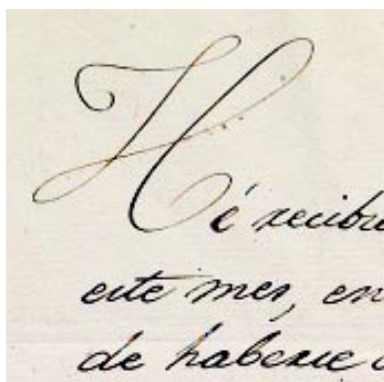 Hé recibid
este mes, en
de haberse